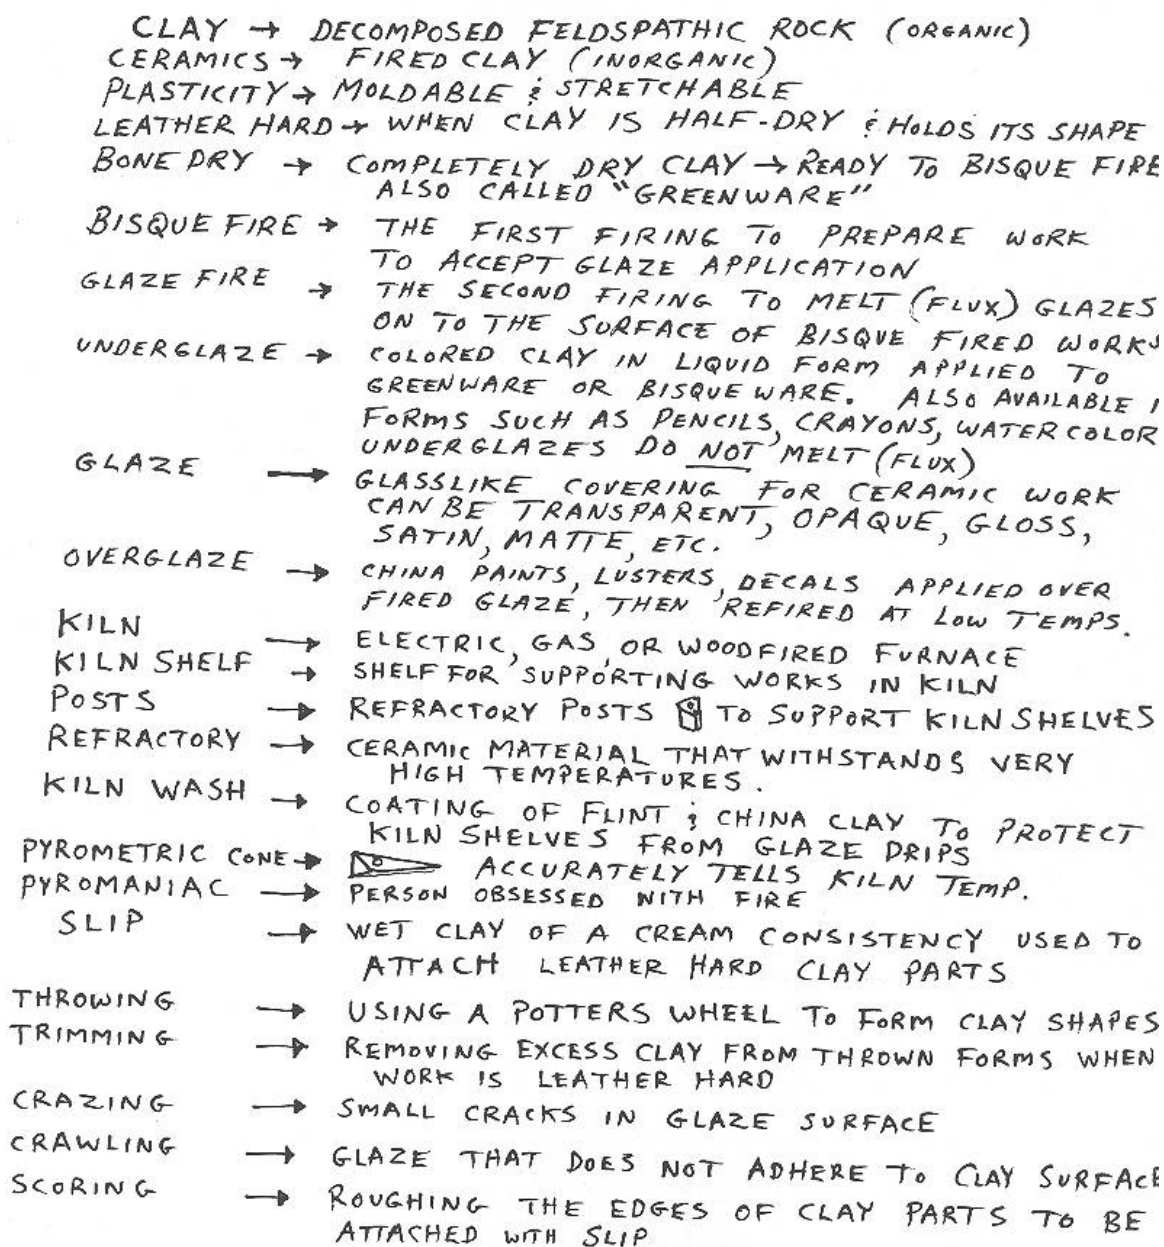 CLAY → DECOMPOSED FELDSPATHIC ROCK (ORGANIC)
CERAMICS → FIRED CLAY (INORGANIC)
PLASTICITY → MOLDABLE & STRETCHABLE
LEATHER HARD → WHEN CLAY IS HALF-DRY & HOLDS ITS SHAPE
BONE DRY → COMPLETELY DRY CLAY → READY TO BISQUE FIRE
ALSO CALLED "GREENWARE"
BISQUE FIRE → THE FIRST FIRING TO PREPARE WORK
TO ACCEPT GLAZE APPLICATION
GLAZE FIRE → THE SECOND FIRING TO MELT (FLUX) GLAZES
ON TO THE SURFACE OF BISQUE FIRED WORKS
UNDERGLAZE → COLORED CLAY IN LIQUID FORM APPLIED TO
GREENWARE OR BISQUEWARE. ALSO AVAILABLE
FORMS SUCH AS PENCILS, CRAYONS, WATERCOLOR
UNDERGLAZES DO NOT MELT (FLUX)
GLAZE → GLASSLIKE COVERING FOR CERAMIC WORK
CAN BE TRANSPARENT, OPAQUE, GLOSS,
SATIN, MATTE, ETC.
OVERGLAZE → CHINA PAINTS, LUSTERS, DECALS APPLIED OVER
FIRED GLAZE, THEN REFIRED AT LOW TEMPS.
KILN → ELECTRIC, GAS, OR WOODFIRED FURNACE
KILN SHELF → SHELF FOR SUPPORTING WORKS IN KILN
POSTS → REFRACTORY POSTS TO SUPPORT KILN SHELVES
REFRACTORY → CERAMIC MATERIAL THAT WITHSTANDS VERY
HIGH TEMPERATURES.
KILN WASH → COATING OF FLINT & CHINA CLAY TO PROTECT
KILN SHELVES FROM GLAZE DRIPS
PYROMETRIC CONE → ACCURATELY TELLS KILN TEMP.
PYROMANIAC → PERSON OBSESSED WITH FIRE
SLIP → WET CLAY OF A CREAM CONSISTENCY USED TO
ATTACH LEATHER HARD CLAY PARTS
THROWING → USING A POTTERS WHEEL TO FORM CLAY SHAPES
TRIMMING → REMOVING EXCESS CLAY FROM THROWN FORMS WHEN
WORK IS LEATHER HARD
CRAZING → SMALL CRACKS IN GLAZE SURFACE
CRAWLING → GLAZE THAT DOES NOT ADHERE TO CLAY SURFACE
SCORING → ROUGHING THE EDGES OF CLAY PARTS TO BE
ATTACHED WITH SLIP